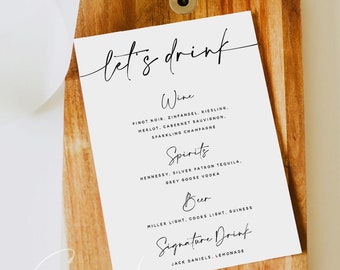 let's drink
Wine
PINOT NOIR, ZINFANDEL, RIESLING,
MERLOT, CABERNET SAUVIGNON,
SPARKLING CHAMPAGNE
Spirits
HENNESSY, SILVER PATRON TEQUILA,
GREY GOOSE VODKA
Beer
MILLER LIGHT, COORS LIGHT, GUINESS
Signature Drink
JACK DANIELS, LEMONADE